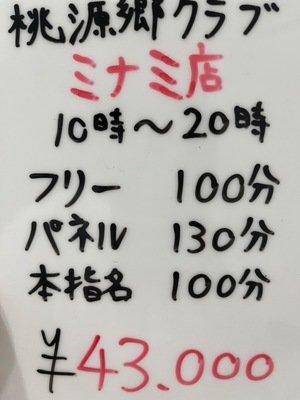 桃源郷クラブ
ミナミ店
10時～20時
フリー 100分
パネル 130分
本指名 100分
¥43.000